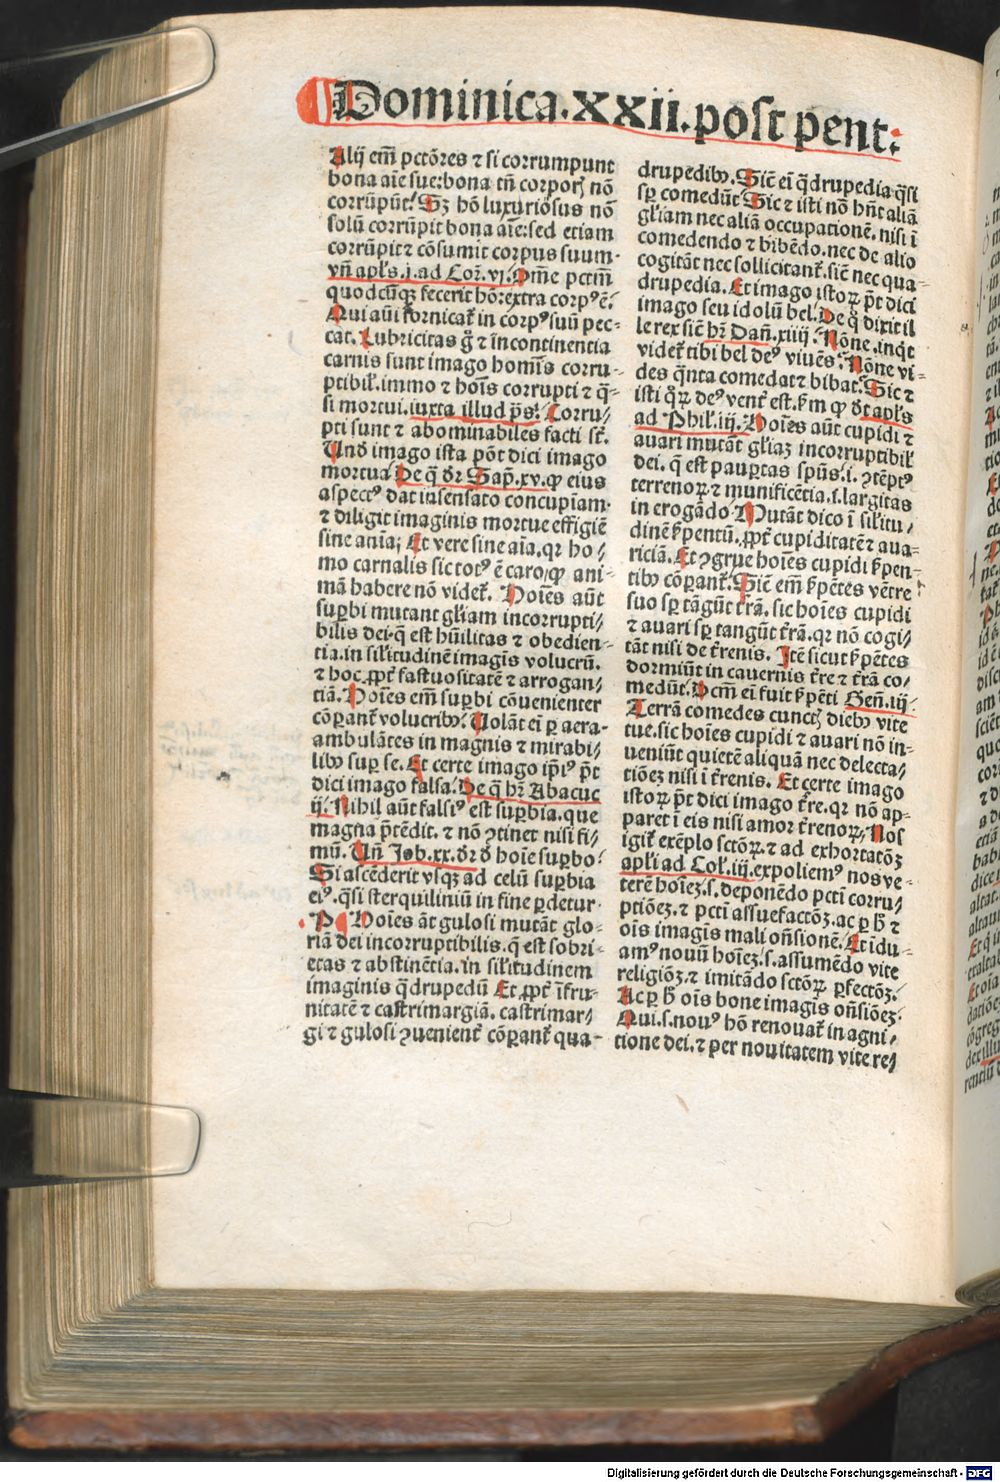 Dominica.xxii.post pent:
Alij em̄ pctōres ⁊ si corrumpunt
bona aīe sue:bona tn̄ corporꝭ nō
corrūpūt. Sꝫ hō luxuriōsus nō
solū corrūpit bona aīe:sed etiam
corrūpit ⁊ cōsumit corpus suum.
vn̄ apl's.j.ad Cor̄.vj.Om̄e pctm̄
quodcūqꝫ fecerit hō:extra corpꝰ ē.
Qui aūt fornicat̄ in corpꝰ suū pec-
cat. Lubricitas g̊ ⁊ īncontinentia
carnis sunt imago homīs corru-
ptibil'.immo ⁊ hoīs corrupti ⁊ q̄-
si mortui.iuxta illud ps̄. Corru/
pti sunt ⁊ abominabiles facti sūt.
Unđ imago ista pōt dici imago
mortua. De q̄ dr̄ Sap̄.xv.ꝙ eius
aspectꝰ dat insensato concupiam.
⁊ diligit imaginis mortue effigiē
sine anīa; Et vere sine aīa.qꝛ ho/
mo carnalis sic totꝰ ē caro/ꝙ ani-
mā habere nō videt̄. Hoīes aūt
supbi mutant gl'iam incorrupti/
bilis dei.q̄ est hūilitas ⁊ obedien-
tia.in sil'itudinē imagīs volucrū.
⁊ hoc ꝓpt̄ fastuositatē ⁊ arrogan/
tiā. Hoīes em̄ supbi cōuenienter
cōꝑant̄ volucribꝰ. Uolāt ei ꝑ aera.
ambulātes in magnis ⁊ mirabi/
libꝰ suꝑ se. Et certe imago ip̄i' pōt
dici imago falsa. De q̄ hr̄ Abacuc
ij. Nihil aūt falsiꝰ est suꝑbia.que
magna p̄tēdit. ⁊ nō ꝯtinet nisi fi/
mū. Un̄ Job.xx.dr̄ đ hoīe suꝑbo.
Si ascēderit vsqꝫ ad celū suꝑbia
eiꝰ.q̄si sterquiliniū in fine ꝑdetur.
Hoīes āt gulosi mutāt glo-
riā dei incorruptibilis.q̄ est sobri-
etas ⁊ abstinētia.in sil'itudinem
imaginis q̄drupedū Et ꝓpt̄ īfru-
nitatē ⁊ castrimargiā. castrimar/
gi ⁊ gulosi ꝯuenient̄ cōꝑant̄ qua-
drupedibꝰ. Sic̄ ei q̄drupedia q̄si
sꝑ comedūt Sic ⁊ isti nō hn̄t aliā
gl'iam nec aliā occupationē. nisi ī
comedendo ⁊ bibēdo.nec de alio
cogitāt nec sollicitant̄.sic̄ nec qua-
drupedia. Et imago istoꝝ pōt dici
imago seu idolū bel. De q̄ dixit il
le rex sic̄ hr̄ Dan̄.xiiij. Nōne.inq̄t
videt̄ tibi bel deꝰ viuēs. Nōne vi-
des q̄nta comedat ⁊ bibat. Sic ⁊
isti q̄ꝝ deꝰ vent̄ est.fm ꝙ dt̄ apl's
ad Phil'.iij. Hoīes aūt cupidi ⁊
auari mutāt gl'iaꝫ incorruptibil'
dei. q̄ est pauꝑtas spūs/.i. ꝯtēptꝰ
terrenoꝝ ⁊ munificētia.s.largitas
in erogādo. Mutāt dico ī sil'itu/
dinē ẜpentū. ꝓpt̄ cupiditatē ⁊ aua/
riciā. Et ꝯgrue hoīes cupidi ẜpen-
tibꝰ cōꝑant̄. Sic̄ em̄ ẜpētes vētre
suo sꝑ tāgūt t̄rā. sic hoīes cupidi
⁊ auari sꝑ tangūt t̄rā.qꝛ nō cogi/
tāt nisi de t̄renis. Itē sicut ẜpētes
dormiūt in cauernis t̄re ⁊ t̄rā co/
medūt. Dcm̄ ei fuit ẜpēti Gen̄.iij.
Terrā comedes cunctꝭ diebꝰ vite
tue.sic hoīes cupidi ⁊ auari nō in-
ueniūt quietē aliquā nec delecta/
tiōeꝫ nisi ī t̄renis. Et certe imago
istoꝝ pōt dici imago t̄re.qꝛ nō ap-
paret ī eis nisi amor t̄renoꝝ. Nos
igit̄ exēplo sctōꝝ.⁊ ad exhortatōꝫ
apl'i ad Col'.iij.expoliemꝰ nos ve-
terē hoīeꝫ.s.deponēdo pctī corru/
ptiōeꝫ.⁊ pctī assuefactōꝫ.ac ꝑ h̄ ⁊
oīs imagīs mali oñsionē. Et īdu-
amꝰ nouū hoīeꝫ.s.assumēdo vite
religiōꝫ.⁊ imitādo sctōꝝ ꝑfectōꝫ.
Ac ꝑ h̄ oīs bone imagīs oñsiōeꝫ.
Qui.s.nouꝰ hō renouat̄ in agni/
tione dei.⁊ per nouitatem vite re/
Digitalisierung gefördert durch die Deutsche Forschungsgemeinschaft - DFG